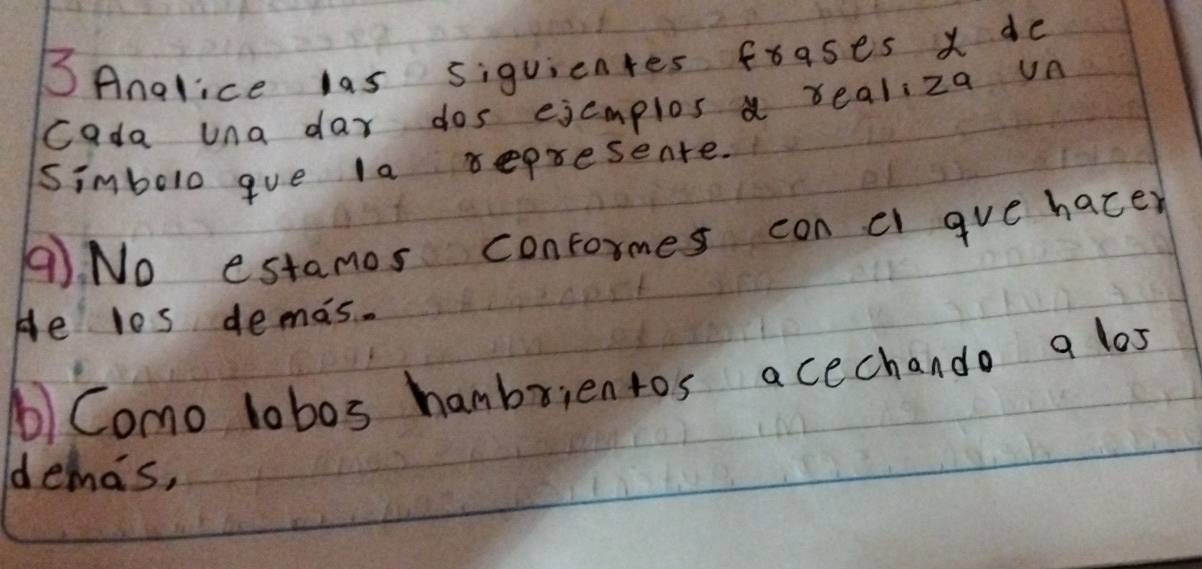 3 Analice las siguientes frases y de
cada una dar dos ejemplos y realiza un
símbolo que la represente.
a) No estamos conformes con el que hacer
de los demás.
b) Como lobos hambrientos acechando a los
demás,